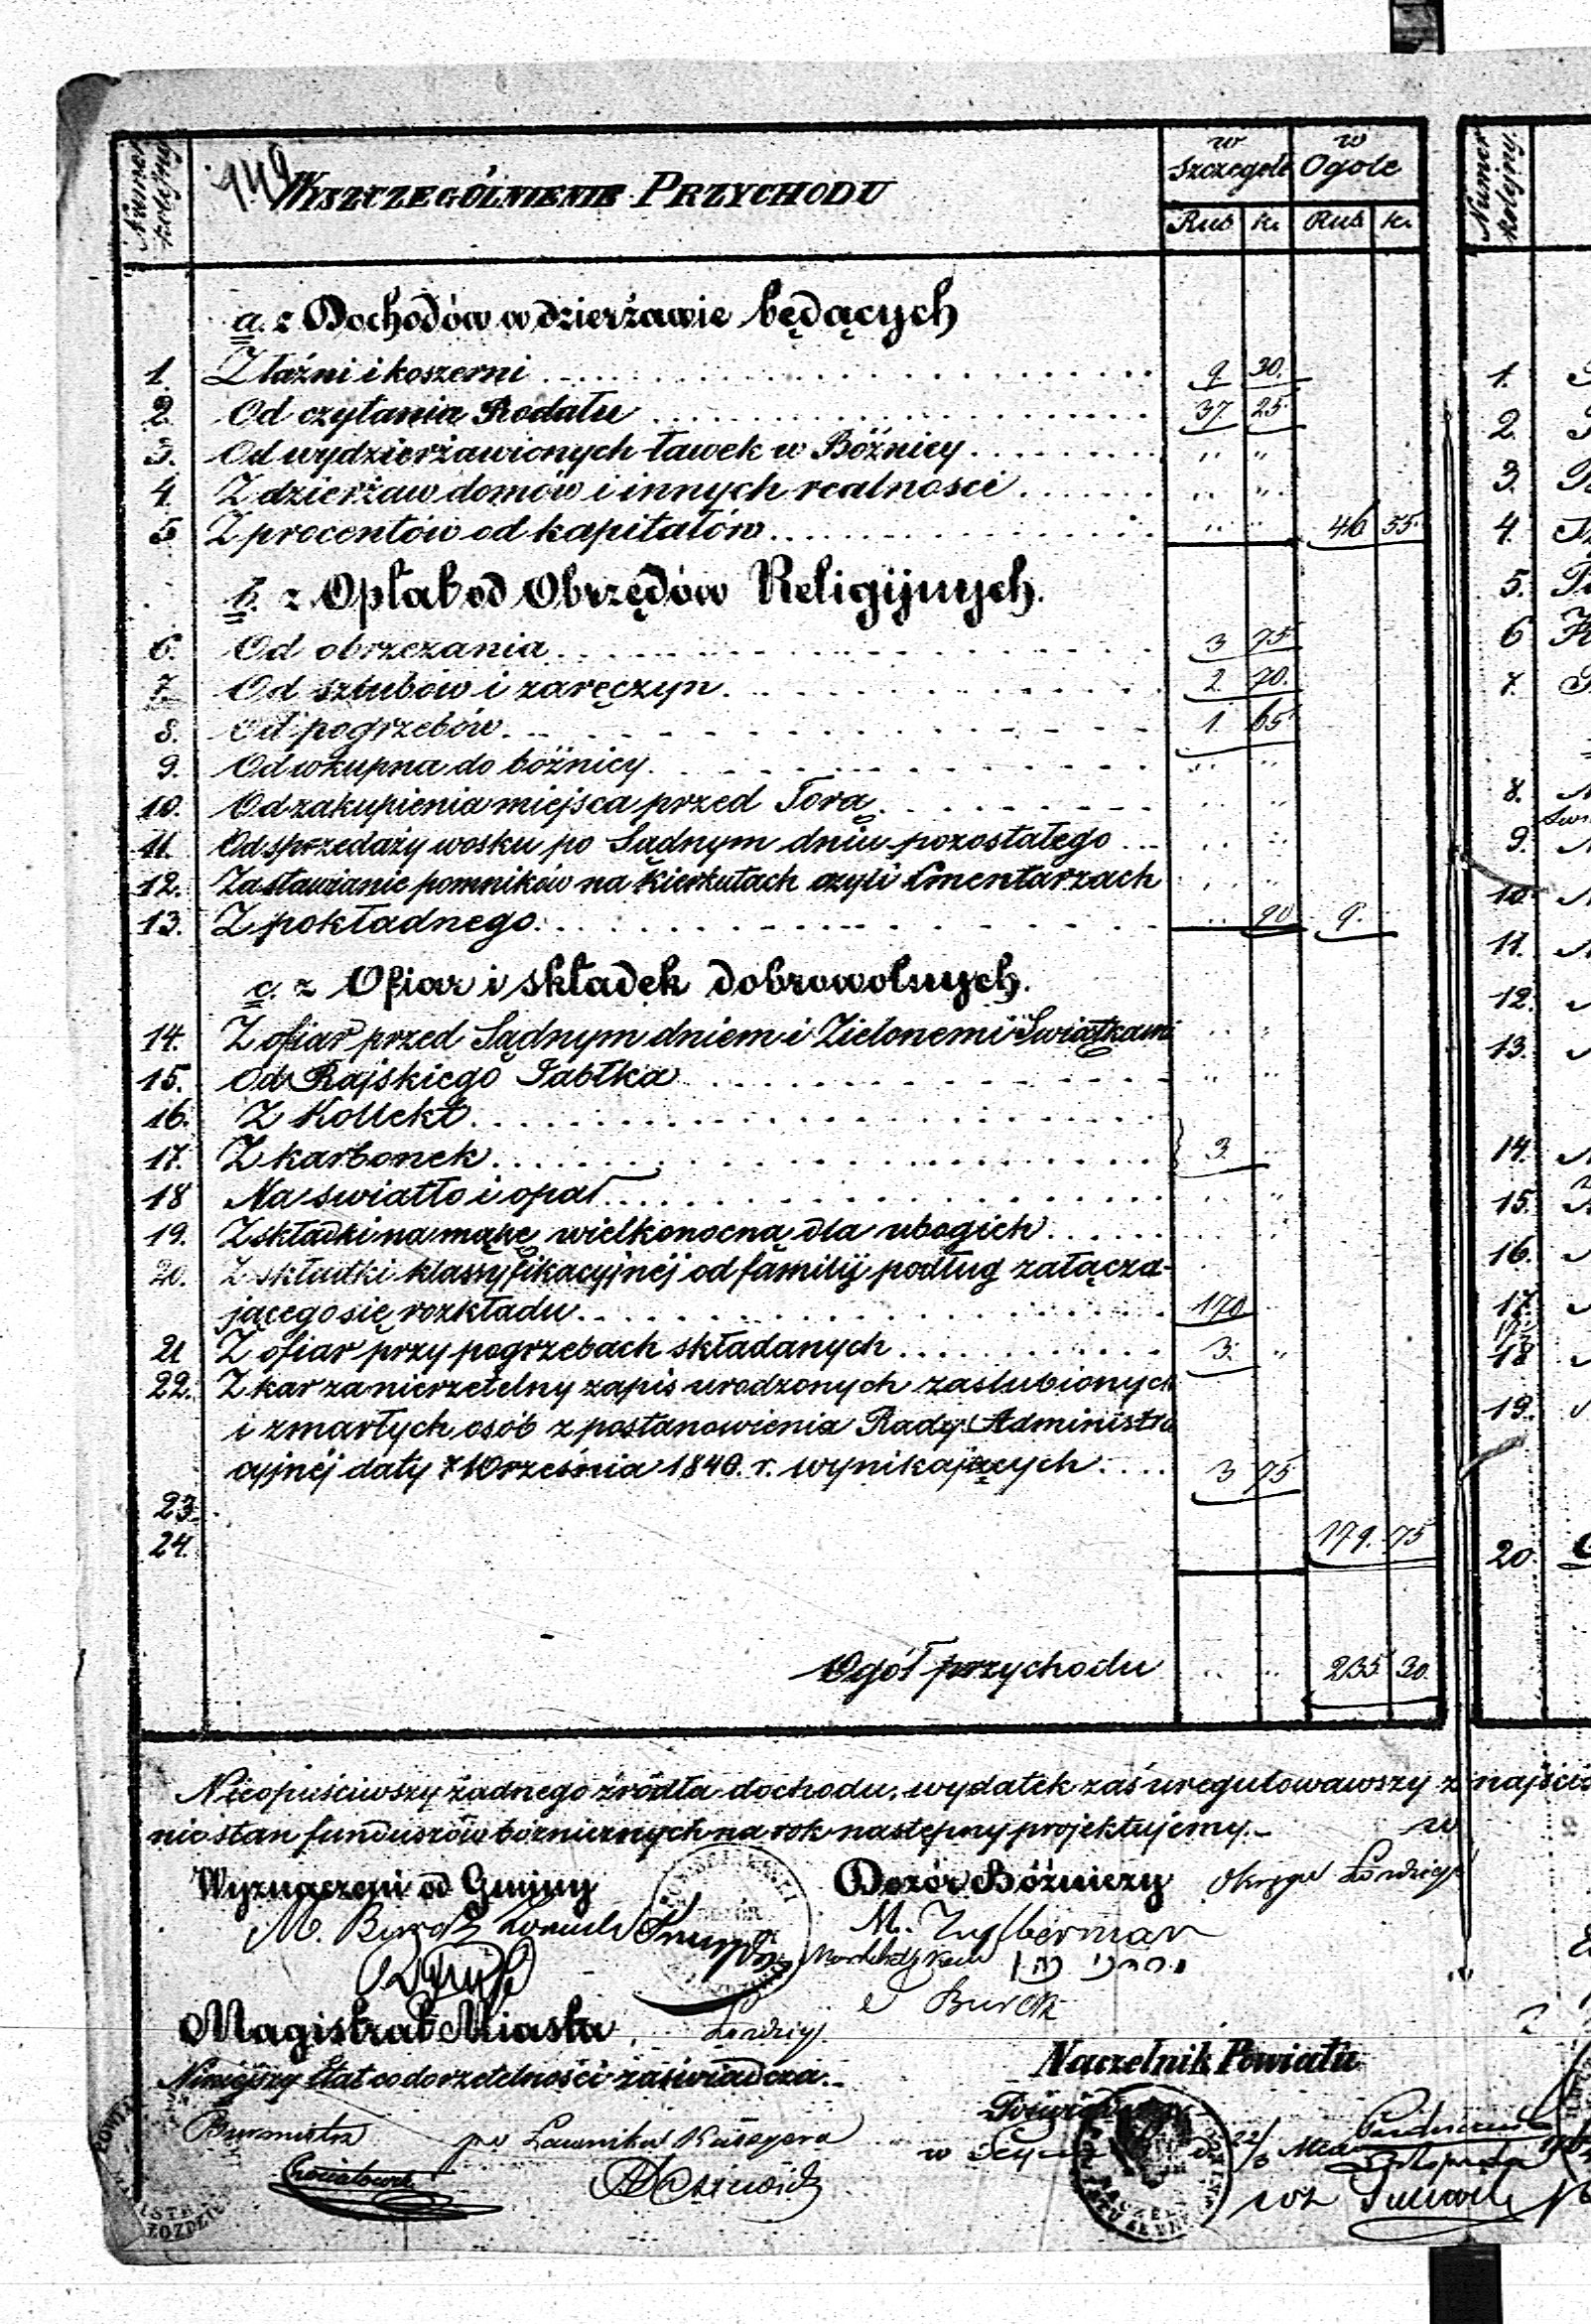 Numer kolejny
149
WYSZCZEGÓLNIENIE PRZYCHODU
w Szczegole
w Ogole
Rub k. Rub k.
a. z Dochodów w dzierżawie będących
1. Z łaźni i koszerni 9. 30.
2. Od czytania Rodału 37. 25.
3. Od wydzierżawionych ławek w Bóźnicy " "
4. Z dzierżaw domów i innych realności " "
5 Z procentów od kapitałów " " 46 55.
b. z Opłat od Obrzędów Religijnych.
6. Od obrzezania 3 75
7. Od szlubów i zaręczyn 2. 70.
8. Od pogrzebów 1. 65.
9. Od wkupna do bóźnicy " "
10. Od zakupienia miejsca przed Torą " "
11. Od sprzedaży wosku po Sądnym dniu pozostałego " "
12. Za stawianie pomników na kierkutach czyli Cmentarzach " "
13. Z pokładnego " 90 9.
c. z Ofiar i składek dobrowolnych.
14. Z ofiar przed Sądnym dniem i Zielonemi Swiątkami " "
15. Od Rajskiego Jabłka " "
16. Z Kollekt
17. Z karbonek 3. "
18 Na swiatło i opał " "
19. Z składki na mąkę wielkonocną dla ubogich " "
20. Z składki klassyfikacyjnéj od familij podług załącza-
jącego się rozkładu 170 "
21 Z ofiar przy pogrzebach składanych 3. "
22. Z kar za nierzetelny zapis urodzonych zaslubionych
i zmarłych osób z postanowienia Rady Administra
cyjnéj daty 7 Września 1840. r. wynikających 3 75
23.
24. 179. 75
Ogół przychodu " " 235 30.
Nieopuściwszy żadnego źródła dochodu, wydatek zaś uregulowawszy z najści
nie stan funduszów bóżniznych na rok następny projektujemy.
Wyznaczeni od Gminy
Dozór Bóźniczy Okręgu Łozdzieje
M. Zylberman
Burak
Magistrat Miasta Łozdziej.
Niniejszy Etat co do rzetelności zaświadcza.
Naczelnik Powiatu
Burmistrz
po Ławnika Kassyera
w